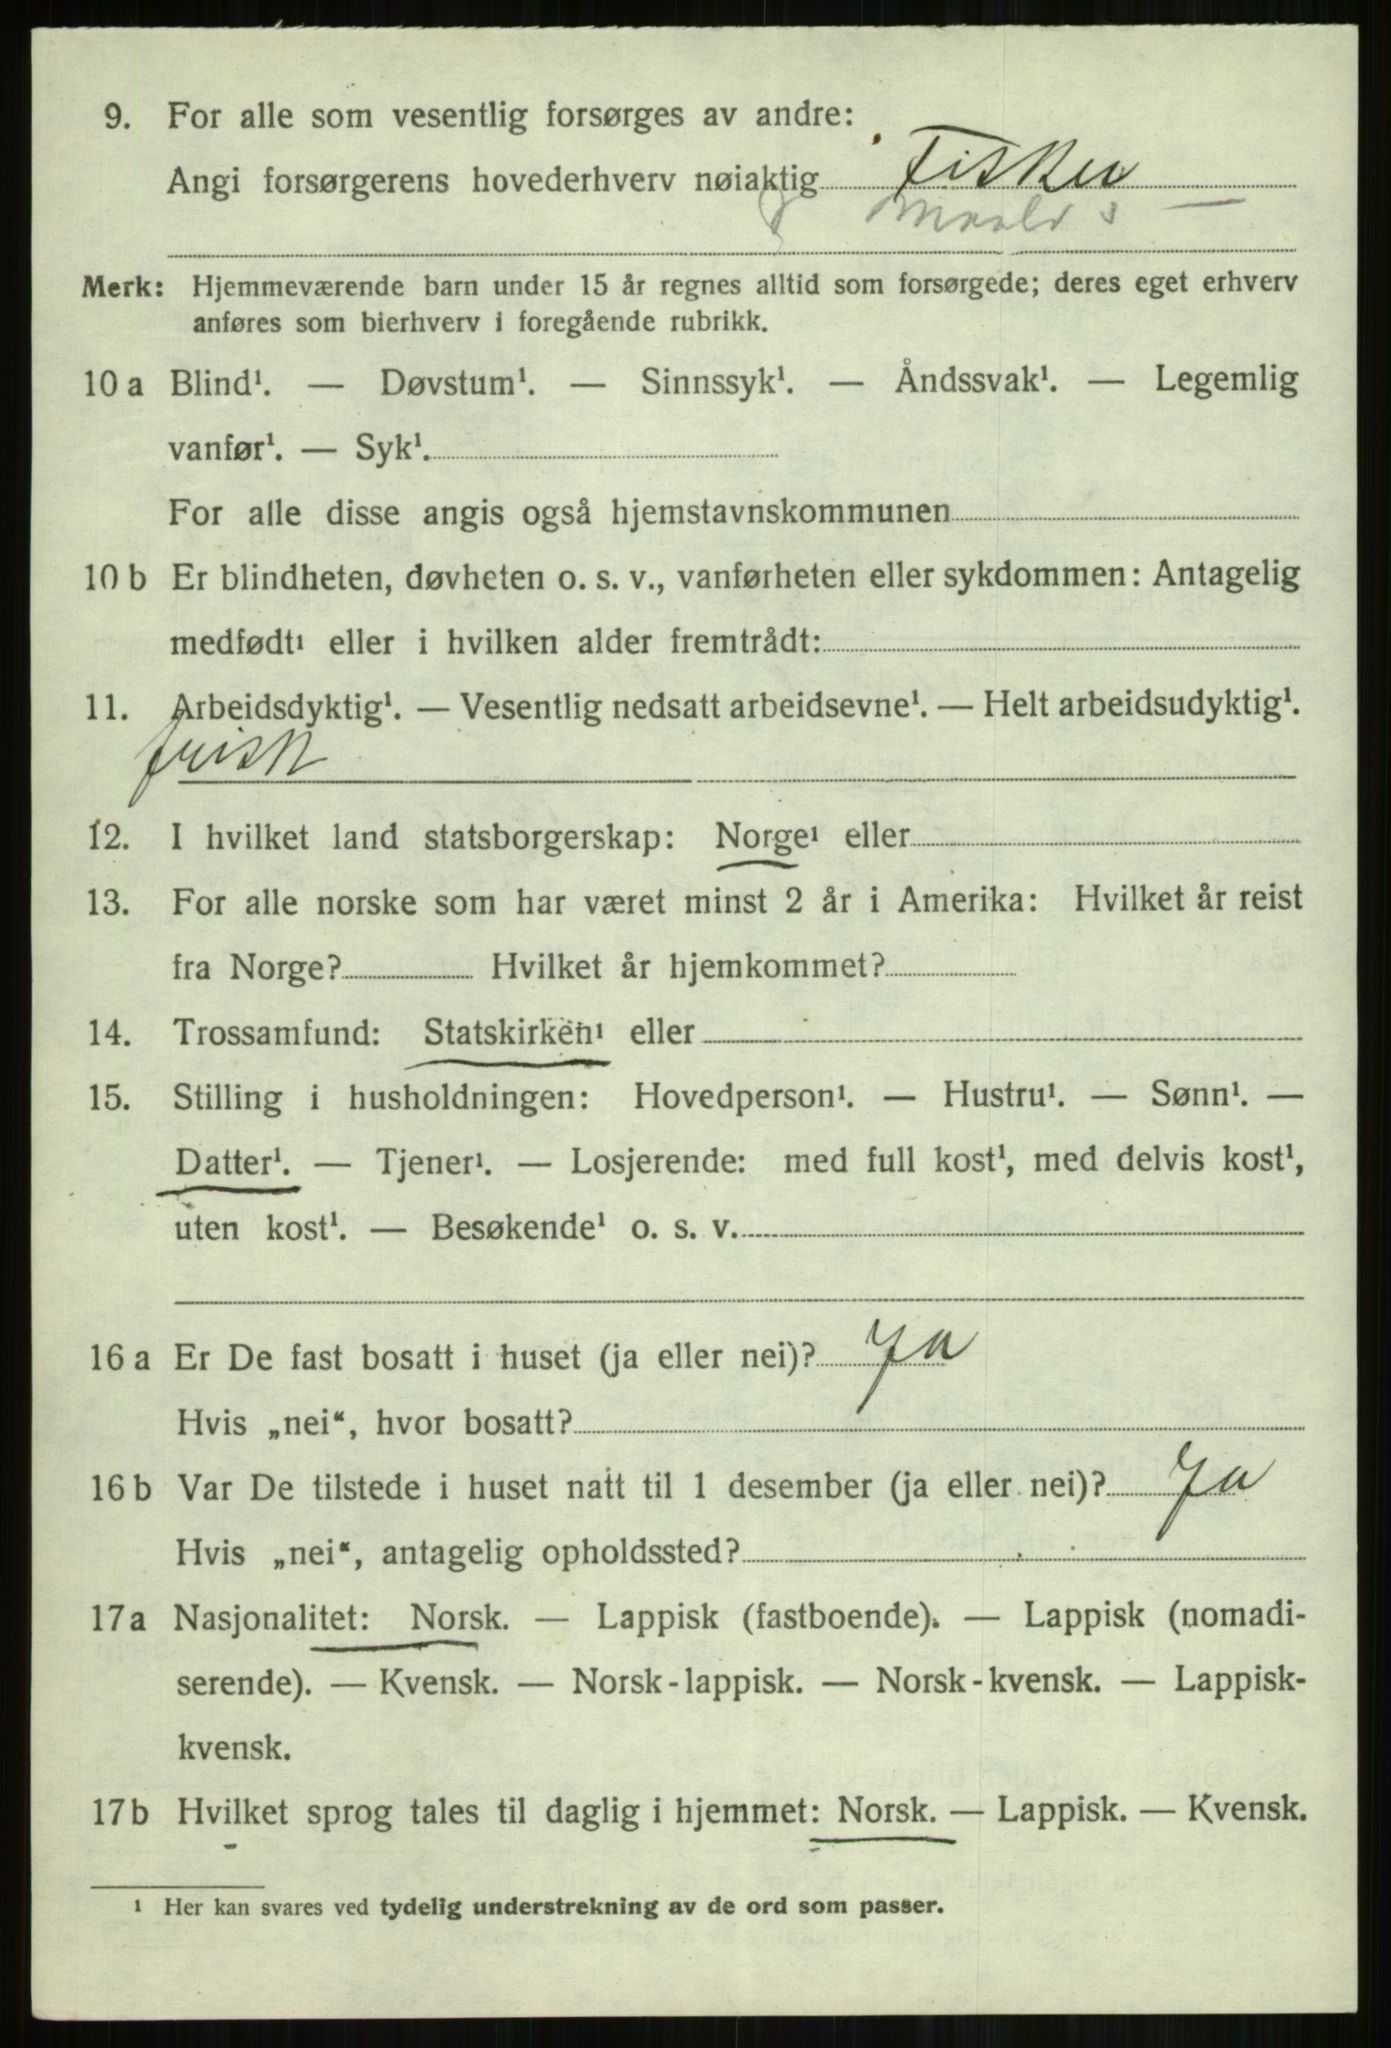 9. For alle som vesentlig forsørges av andre:
Angi forsørgerens hovederhverv nøiaktig Fisker
Merk: Hjemmeværende barn under 15 år regnes alltid som forsørgede; deres eget erhverv
anføres som bierhverv i foregående rubrikk.
10 a Blind¹. — Døvstum¹. — Sinnssyk¹. — Åndssvak¹. — Legemlig
vanfør¹. — Syk¹.
For alle disse angis også hjemstavnskommunen
10 b Er blindheten, døvheten o. s. v., vanførheten eller sykdommen: Antagelig
medfødt¹ eller i hvilken alder fremtrådt:
11. Arbeidsdyktig¹. — Vesentlig nedsatt arbeidsevne¹. — Helt arbeidsudyktig¹.
frisk
12. I hvilket land statsborgerskap: Norge¹ eller
13. For alle norske som har været minst 2 år i Amerika: Hvilket år reist
fra Norge? Hvilket år hjemkommet?
14. Trossamfund: Statskirken¹ eller
15. Stilling i husholdningen: Hovedperson¹. — Hustru¹. — Sønn¹. —
Datter¹. — Tjener¹. — Losjerende: med full kost¹, med delvis kost¹,
uten kost¹. — Besøkende¹ o. s. v.
16 a Er De fast bosatt i huset (ja eller nei)? Ja
Hvis „nei“, hvor bosatt?
16 b Var De tilstede i huset natt til 1 desember (ja eller nei)? Ja
Hvis „nei“, antagelig opholdssted?
17 a Nasjonalitet: Norsk. — Lappisk (fastboende). — Lappisk (nomadi-
serende). — Kvensk. — Norsk-lappisk. — Norsk-kvensk. — Lappisk-
kvensk.
17 b Hvilket sprog tales til daglig i hjemmet: Norsk. — Lappisk. — Kvensk.
¹ Her kan svares ved tydelig understrekning av de ord som passer.